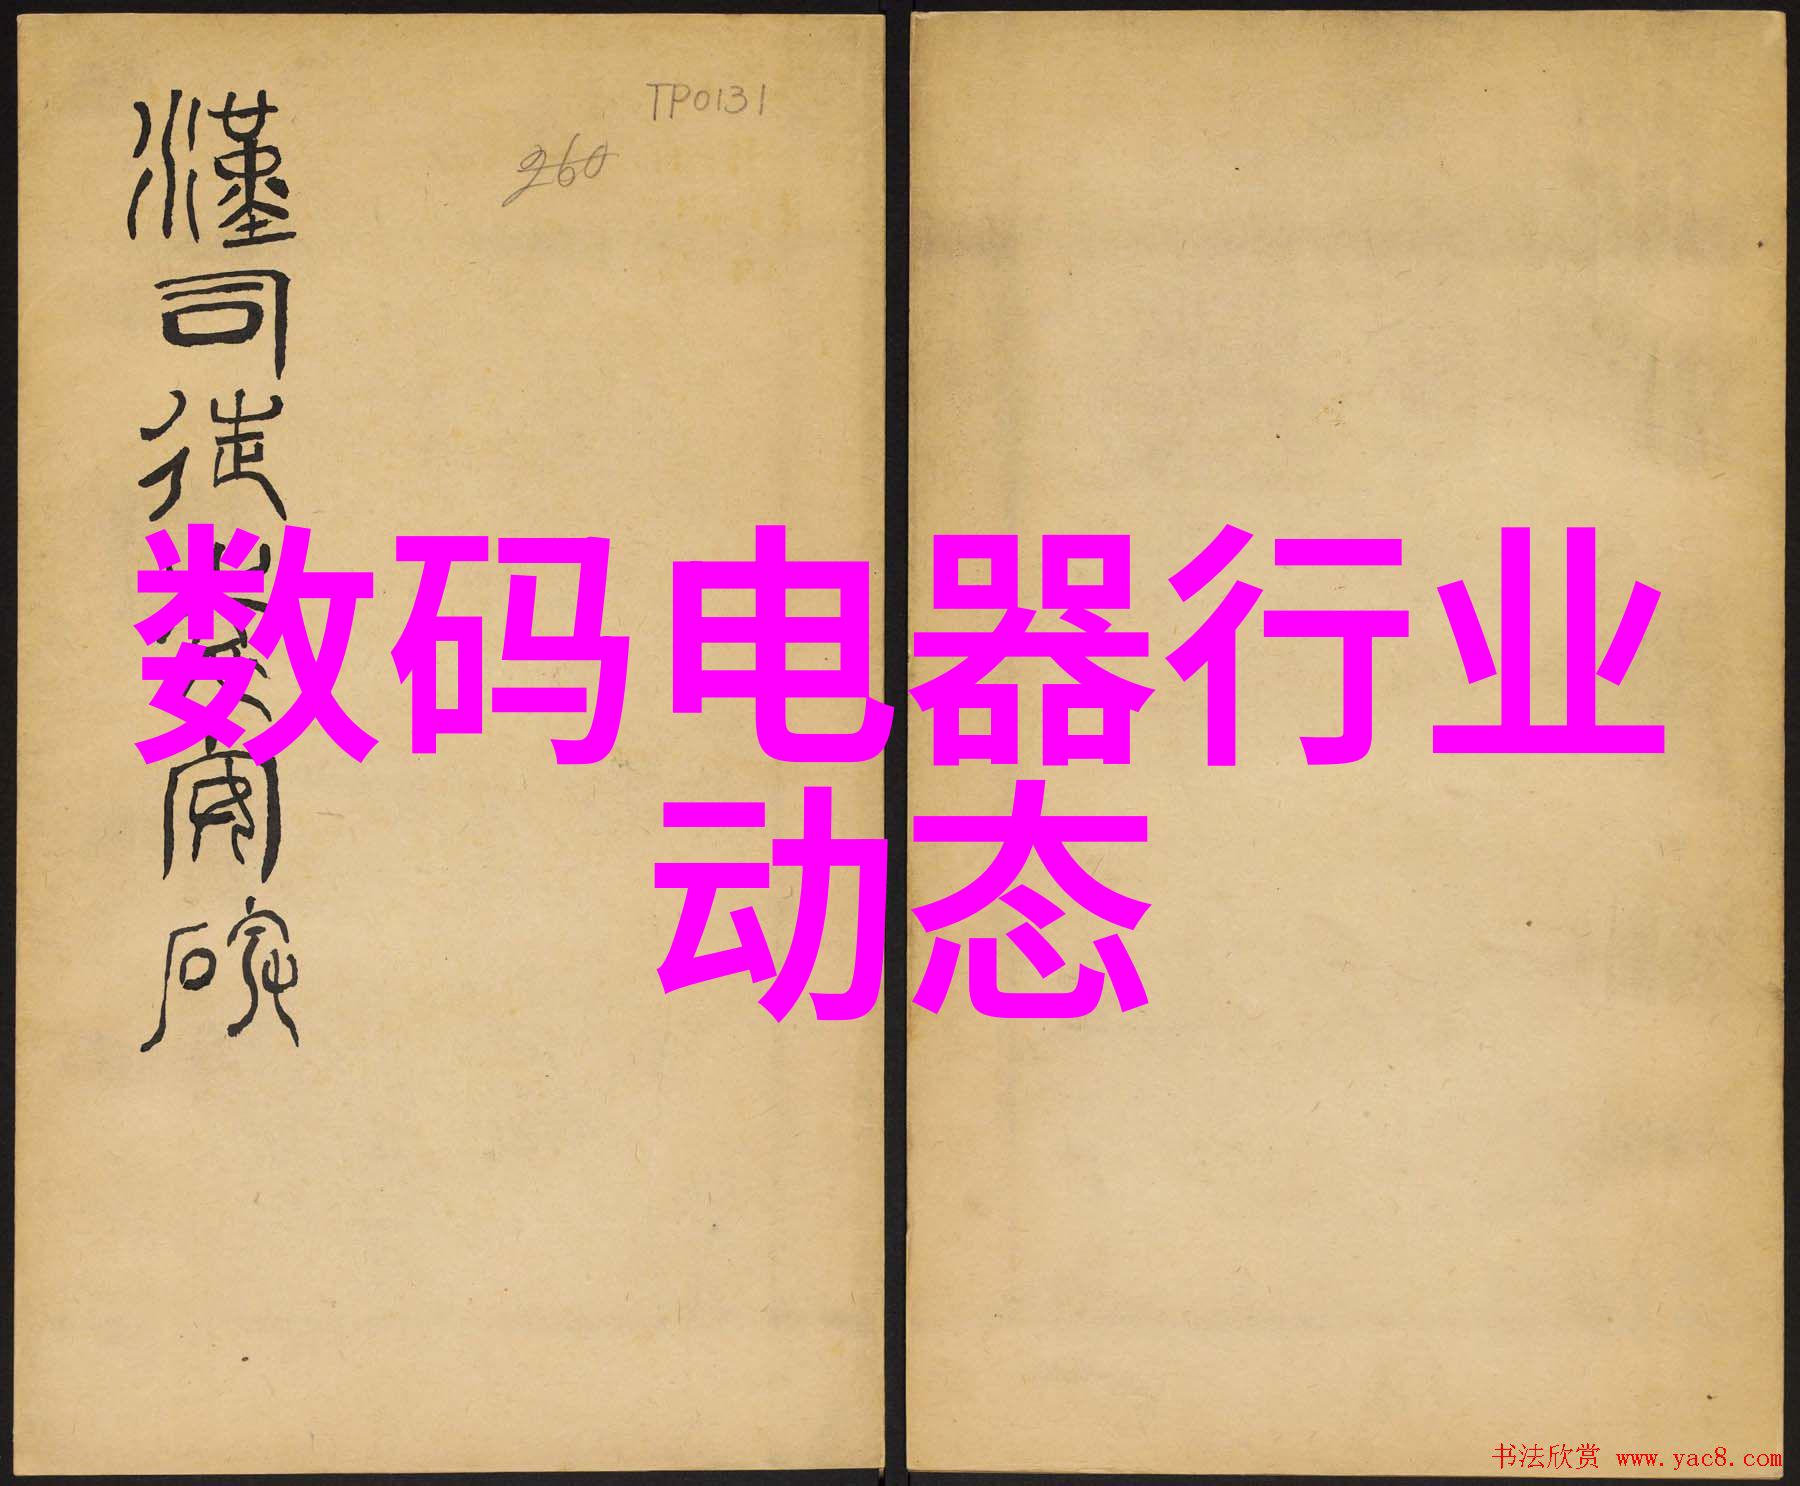 漢司徒袁安碑
TP0131
260
数码电器行业
动态
书法欣赏 www.yac8.com